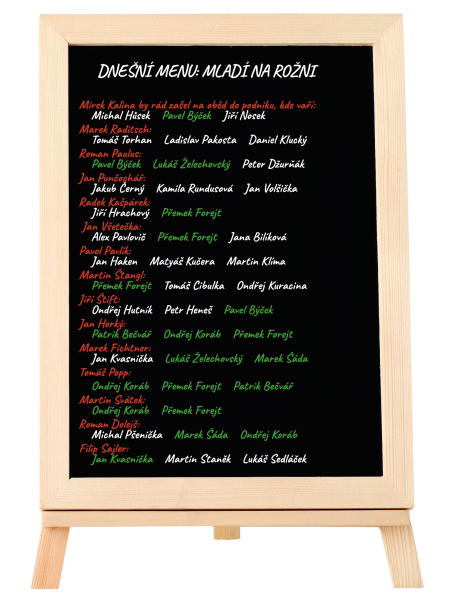 DNEŠNÍ MENU: MLADÍ NA ROŽNI
Mirek Kalina by rád zašel na oběd do podniku, kde vaří:
Michal Hůsek Pavel Býček Jiří Nosek
Marek Raditsch:
Tomáš Torhan Ladislav Pakosta Daniel Klucký
Roman Paulus:
Pavel Býček Lukáš Želechovský Peter Džurňák
Jan Punčochář:
Jakub Černý Kamila Rundusová Jan Volšička
Radek Kašpárek:
Jiří Hrachový Přemek Forejt
Jan Všetečka:
Alex Pavlovič Přemek Forejt Jana Bilíková
Pavel Pavlík:
Jan Haken Matyáš Kučera Martin Klíma
Martin Štangl:
Přemek Forejt Tomáš Cibulka Ondřej Kuracina
Jiří Štift:
Ondřej Hutník Petr Heneš Pavel Býček
Jan Horký:
Patrik Bečvář Ondřej Koráb Přemek Forejt
Marek Fichtner:
Jan Kvasnička Lukáš Želechovský Marek Šáda
Tomáš Popp:
Ondřej Koráb Přemek Forejt Patrik Bečvář
Martin Svátek:
Ondřej Koráb Přemek Forejt
Roman Dolejš:
Michal Pšenička Marek Šáda Ondřej Koráb
Filip Sajler:
Jan Kvasnička Martin Staněk Lukáš Sedláček